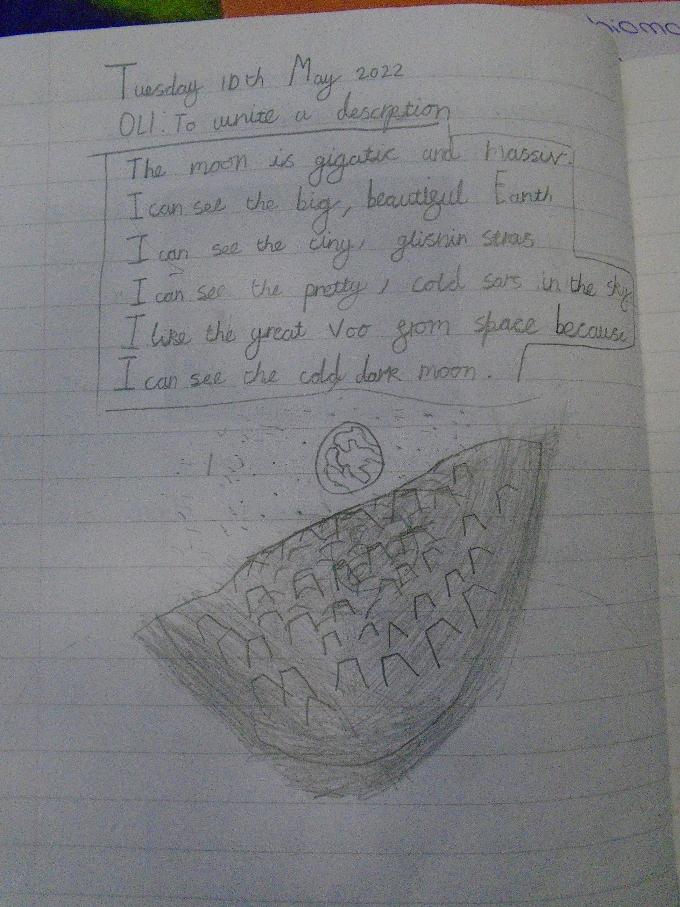 Tuesday 10th May 2022
OLI. To write a description
The moon is gigatic and massiv.
I can see the big, beautigul Earth
I can see the tiny, glishin stras
I can see the pretty, cold sars in the sky
I like the great Voo from space because
I can see the cold dark moon.